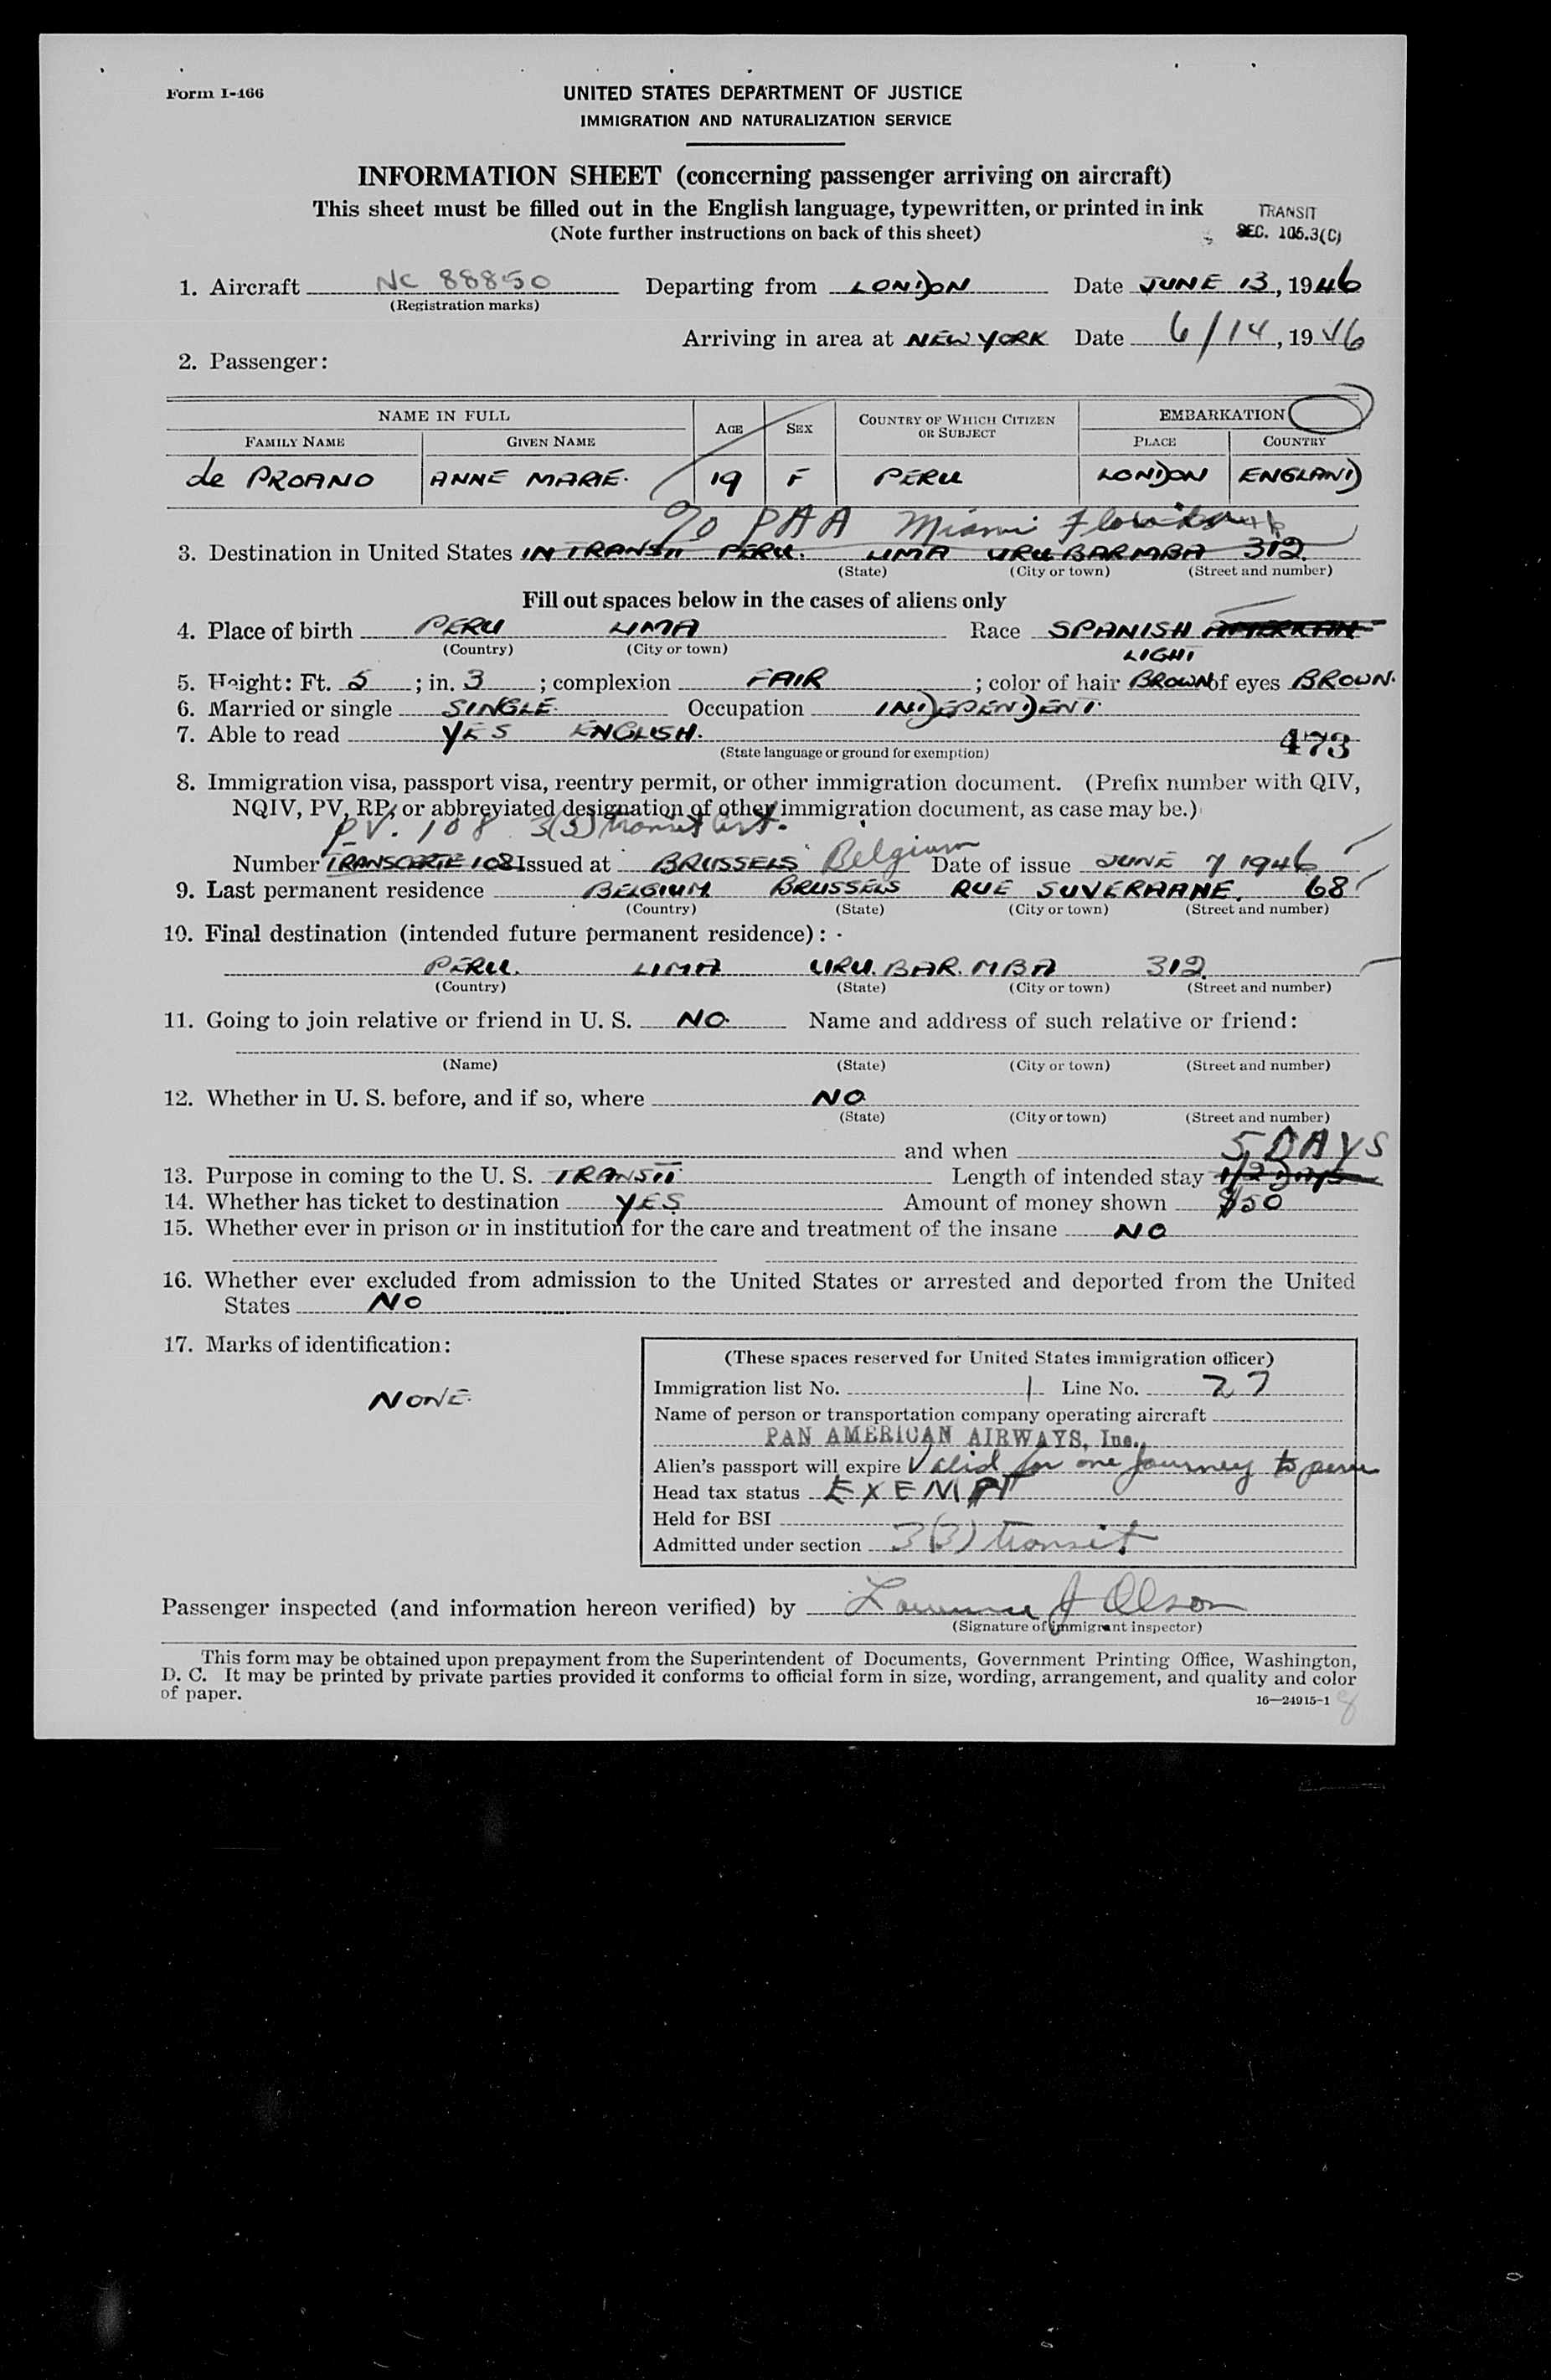 Form I-466
UNITED STATES DEPARTMENT OF JUSTICE
IMMIGRATION AND NATURALIZATION SERVICE
INFORMATION SHEET (concerning passenger arriving on aircraft)
This sheet must be filled out in the English language, typewritten, or printed in ink
TRANSIT
(Note further instructions on back of this sheet)
SEC. 105.3(C)
1. Aircraft NC 88850 Departing from LONDON Date JUNE 13, 1946
(Registration marks)
Arriving in area at NEW YORK Date 6/14, 1946
2. Passenger:
NAME IN FULL AGE SEX COUNTRY OF WHICH CITIZEN OR SUBJECT EMBARKATION
FAMILY NAME GIVEN NAME PLACE COUNTRY
de PROANO ANNE MARIE. 19 F PERU LONDON ENGLAND
c/o PAA Miami Florida
3. Destination in United States IN TRANSIT PERU. LIMA URUBARMBA 312
(State) (City or town) (Street and number)
Fill out spaces below in the cases of aliens only
4. Place of birth PERU LIMA Race SPANISH
(Country) (City or town)
LIGHT
5. Height: Ft. 5; in. 3; complexion FAIR; color of hair BROWN of eyes BROWN.
6. Married or single SINGLE. Occupation INDEPENDENT.
7. Able to read YES ENGLISH.
(State language or ground for exemption)
473
8. Immigration visa, passport visa, reentry permit, or other immigration document. (Prefix number with QIV,
NQIV, PV, RP, or abbreviated designation of other immigration document, as case may be.)
PV. 108 3(3) transit cert.
Number 108 Issued at BRUSSELS Belgium Date of issue JUNE 7 1946
9. Last permanent residence BELGIUM BRUSSELS RUE SUVERHANE. 68
(Country) (State) (City or town) (Street and number)
10. Final destination (intended future permanent residence):
PERU. LIMA URU.BAR.MBA 312.
(Country) (State) (City or town) (Street and number)
11. Going to join relative or friend in U. S. NO. Name and address of such relative or friend:
(Name) (State) (City or town) (Street and number)
12. Whether in U. S. before, and if so, where NO
(State) (City or town) (Street and number)
and when
5 DAYS
13. Purpose in coming to the U. S. TRANSIT Length of intended stay
14. Whether has ticket to destination YES Amount of money shown $50
15. Whether ever in prison or in institution for the care and treatment of the insane NO
16. Whether ever excluded from admission to the United States or arrested and deported from the United
States NO
17. Marks of identification:
NONE.
(These spaces reserved for United States immigration officer)
Immigration list No. 1 Line No. 27
Name of person or transportation company operating aircraft
PAN AMERICAN AIRWAYS, Inc.,
Alien's passport will expire Valid for one journey to peru
Head tax status EXEMPT
Held for BSI
Admitted under section 3(3) transit
Passenger inspected (and information hereon verified) by Lawrence J Olson
(Signature of immigrant inspector)
This form may be obtained upon prepayment from the Superintendent of Documents, Government Printing Office, Washington,
D. C. It may be printed by private parties provided it conforms to official form in size, wording, arrangement, and quality and color
of paper.
16—24915-1
8